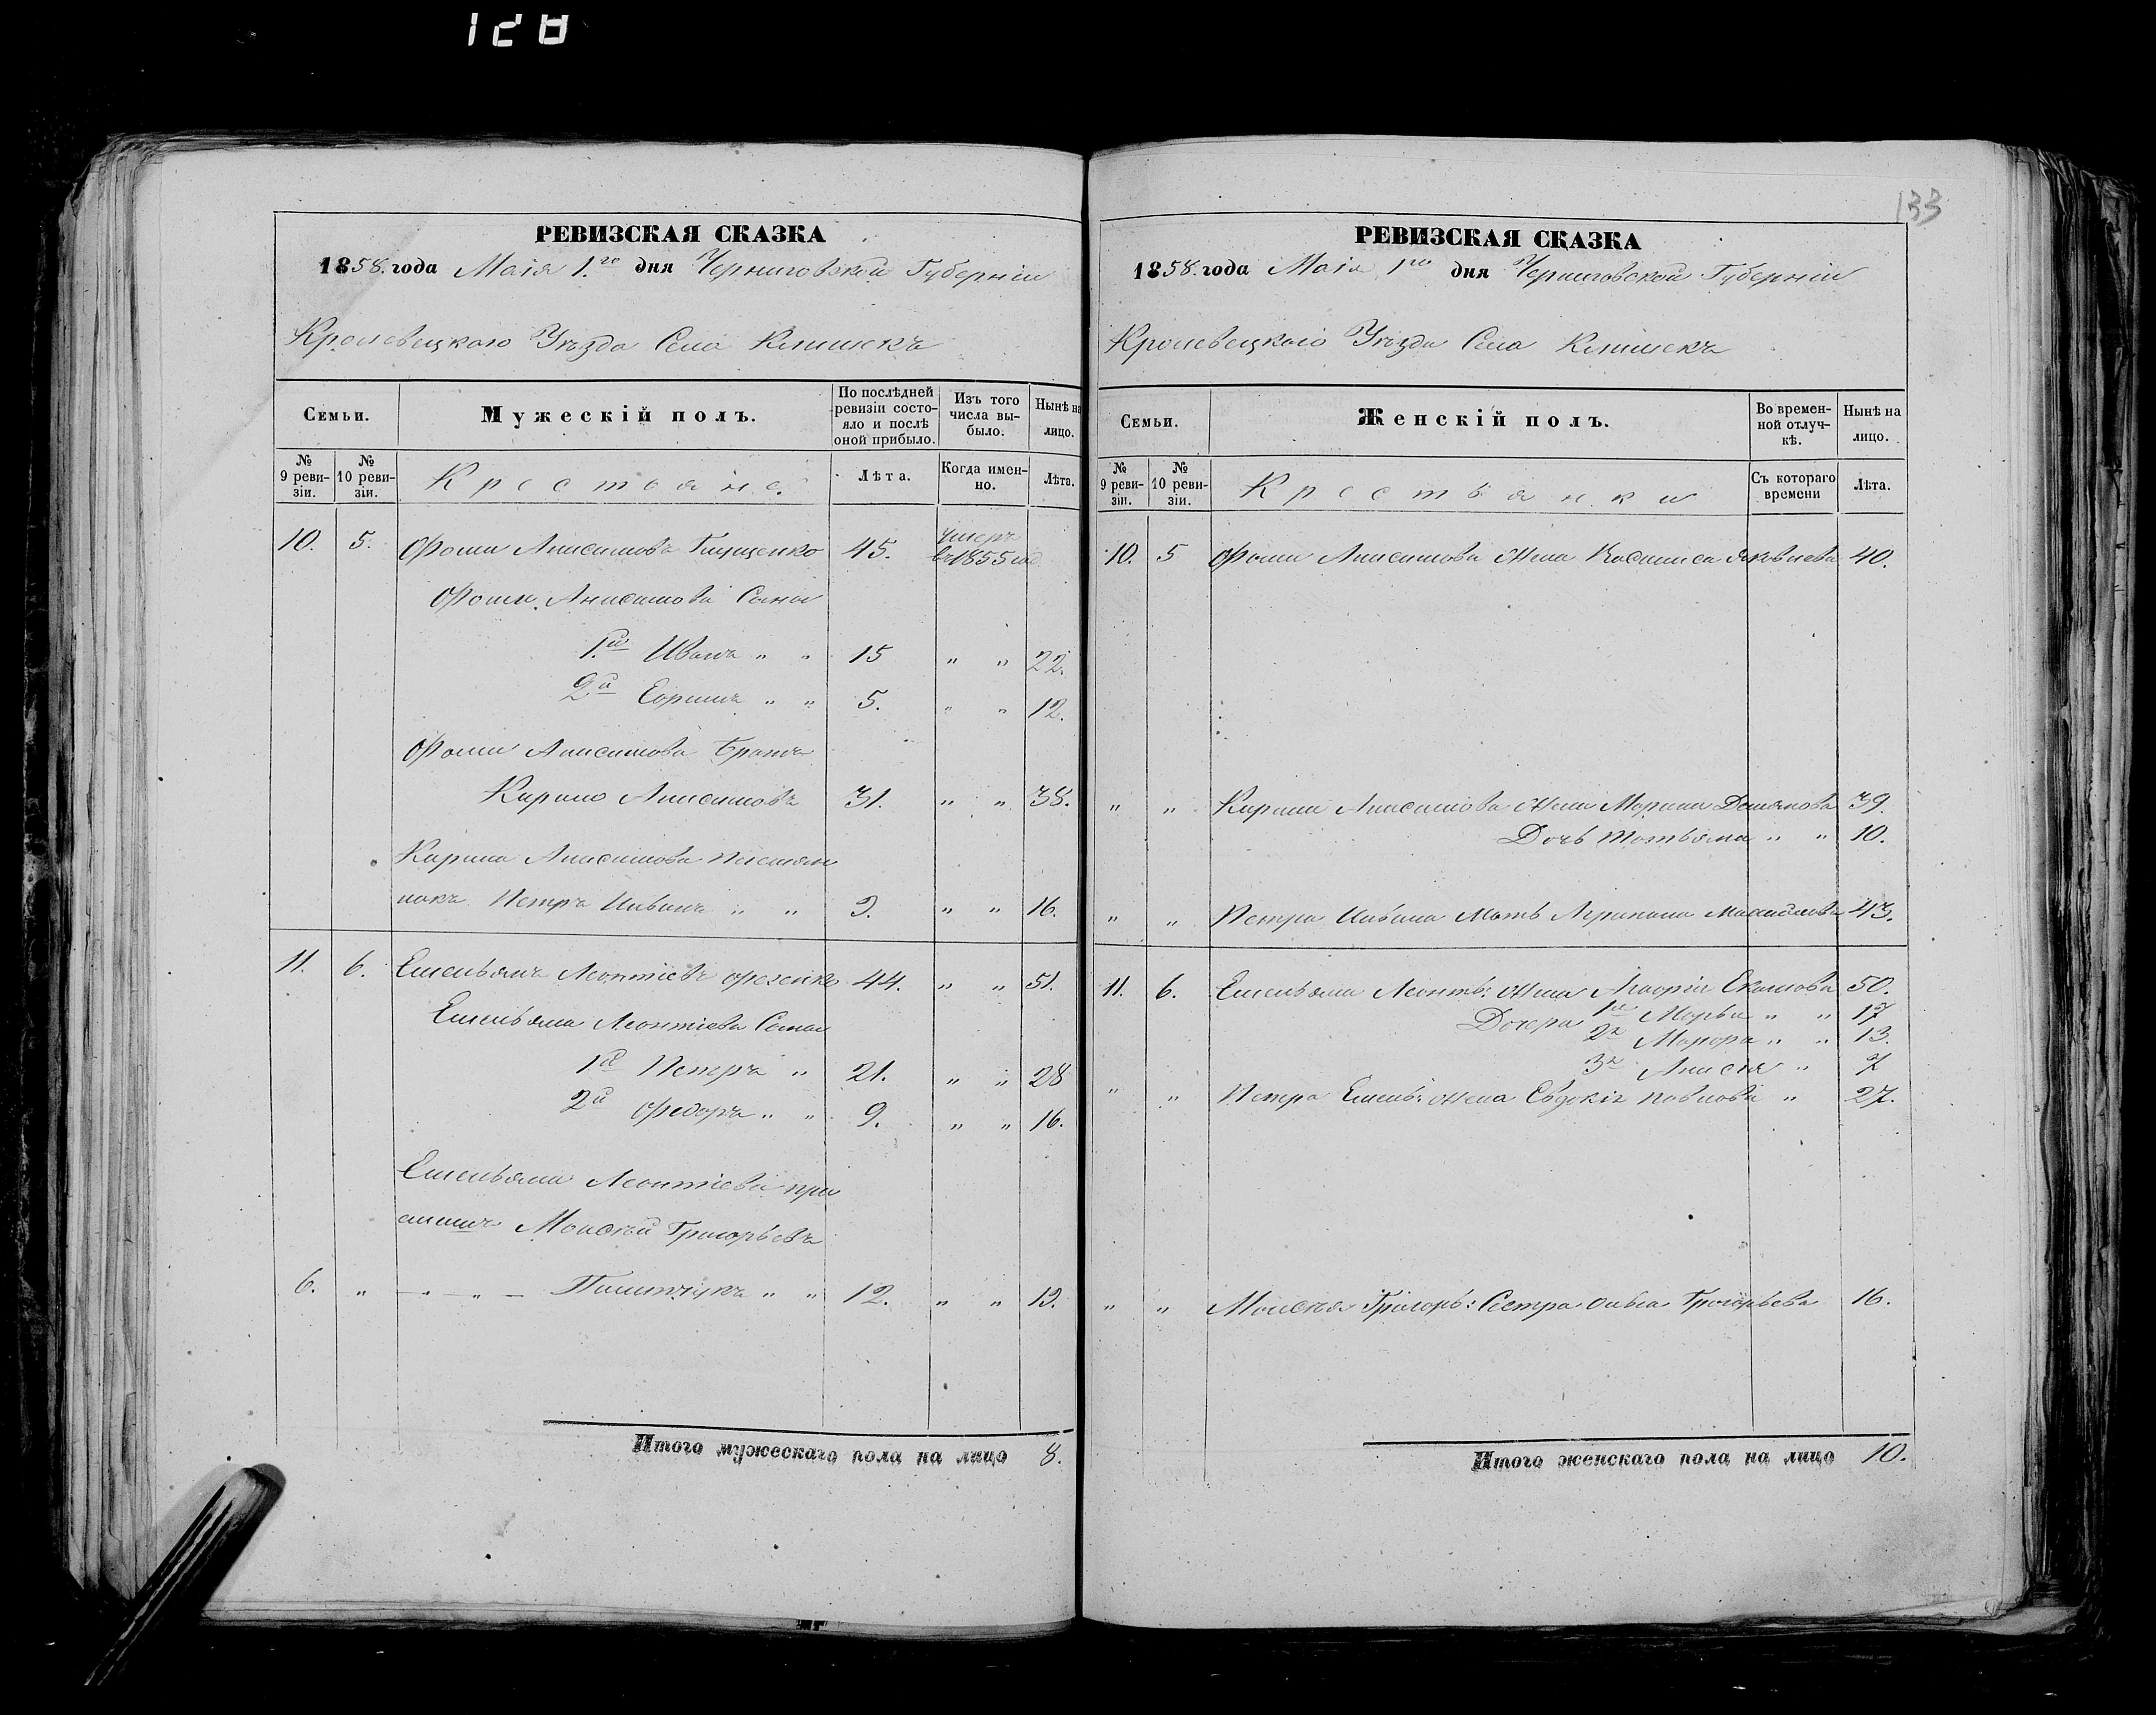 128
133
РЕВИЗСКАЯ СКАЗКА
1858. года Маія 1.го дня Черниговской Губерніи
Кролевецкаго Уѣзда Села Клишекъ
Семьи.
Мужескій полъ.
По послѣдней ревизіи состояло и послѣ оной прибыло.
Изъ того числа выбыло.
Нынѣ на лицо.
№ 9 ревизіи.
№ 10 ревизіи.
Крестьяне.
Лѣта.
Когда именно.
Лѣта.
10. 5. Фома Анисимовъ 45. умеръ въ 1855 год
Фомы Анисимова Сыны
1.й Иванъ " " 15 " " 22.
2й " " 5. " " 12.
Фомы Анисимова Братъ
Кирило Анисимовъ 31. " " 38.
Кирила Анисимова племян
никъ Петръ " " 9. " " 16.
11. 6. Емельянъ Леонтіевъ 44. " " 51.
Емельяна Леонтіева Сыны
1й Петръ " 21. " " 28
2й Федоръ " " 9. " " 16.
Емельяна Леонтіева при
емышъ Моисѣй Григорьевъ
6. " " " " " 12. " " 19.
Итого мужескаго пола на лицо 8.
РЕВИЗСКАЯ СКАЗКА
1858. года Маія 1го дня Черниговской Губерніи
Кролевецкаго Уѣзда Села Клишекъ
Семьи.
Женскій полъ.
Во временной отлучкѣ.
Нынѣ на лицо.
№ 9 ревизіи.
№ 10 ревизіи.
Крестьянки
Съ котораго времени
Лѣта.
10. 5 Фомы Анисимова Жена Яковлева 40.
" " Кирила Анисимова Жена Марина Демянова 39.
Дочь Татьяна " " 10.
" " Петра Мать Агрипина Михайлова 43.
11. 6. Емельяна Леонть: Жена Екимова 50.
Дочери 1я Марья " " 17
2я " " 13.
3я " 7
" " Петра Емель: Жена Евдокія Павлова " 27.
" " Моисѣя Григорь: Сестра Григорьева 16.
Итого женскаго пола на лицо 10.